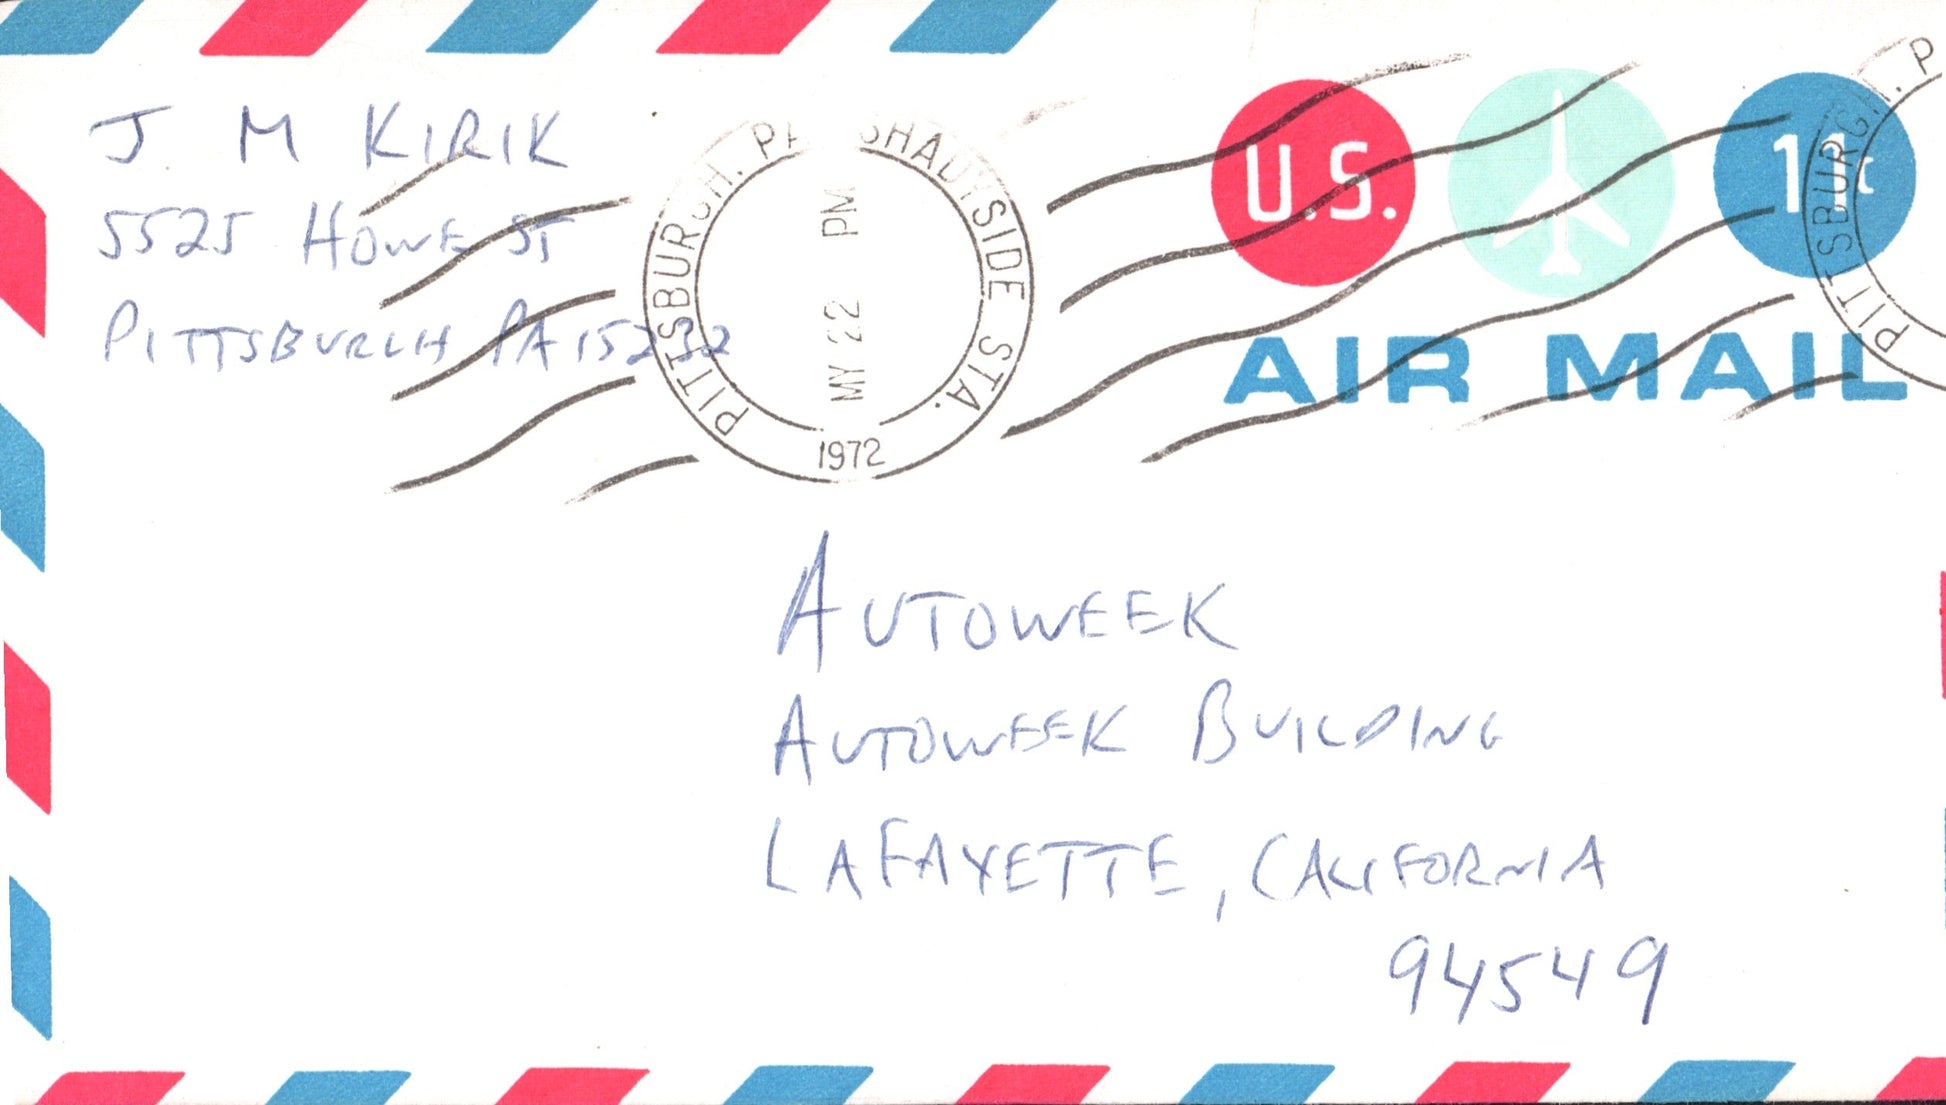 J. M KIRIK
5525 HOWE ST
PITTSBURGH PA 15232
PITTSBURGH, PA SHADYSIDE STA.
MY 22 PM
1972
U.S.
11¢
AIR MAIL
PITTSBURGH, P
AUTOWEEK
AUTOWEEK BUILDING
LAFAYETTE, CALIFORNIA
94549